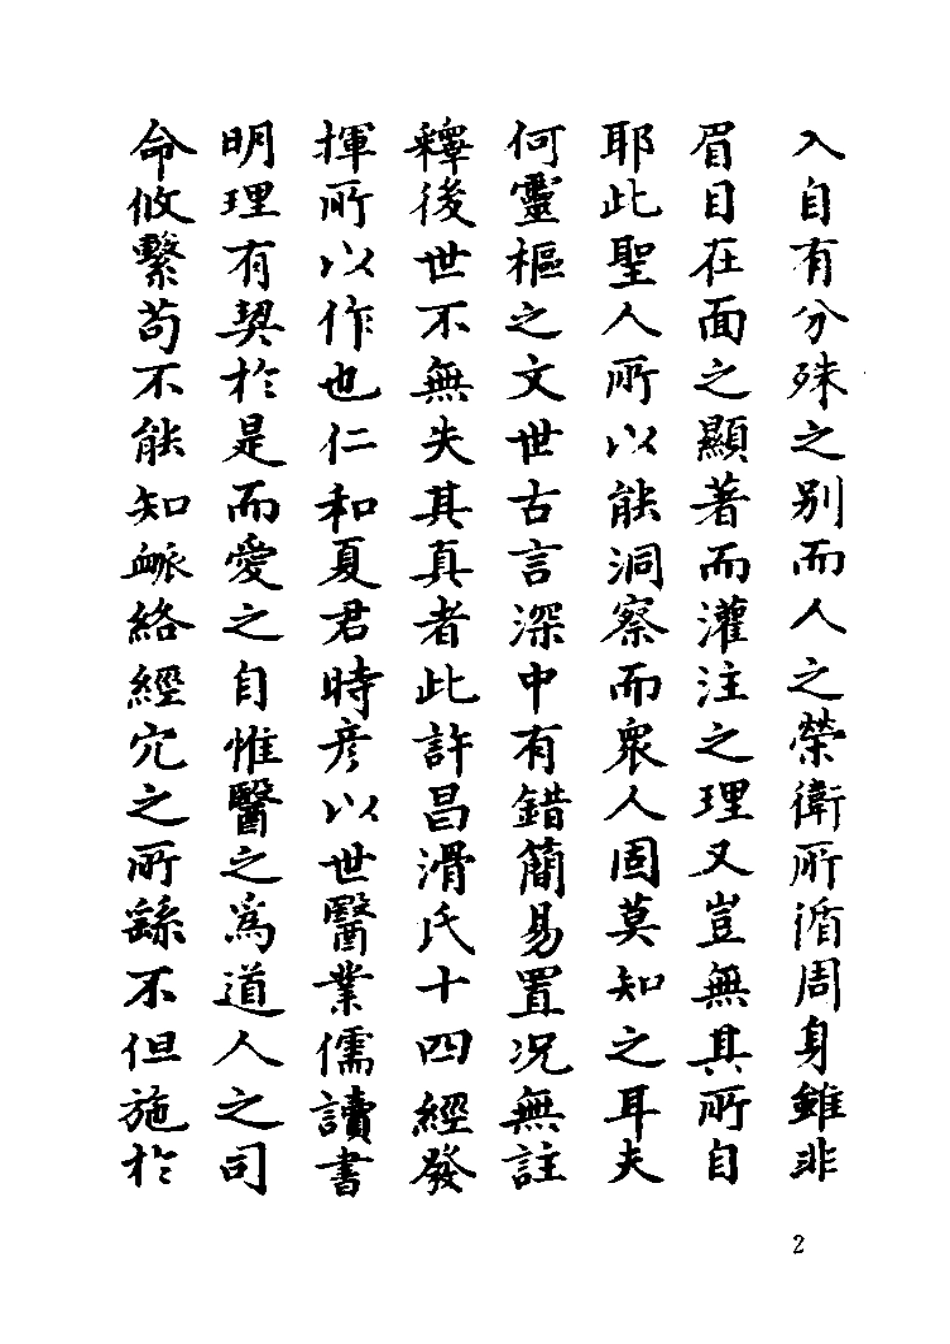 入自有分殊之别而人之榮衛所循周身雖非
眉目在面之顯著而灌注之理又豈無其所自
耶此聖人所以能洞察而衆人固莫知之耳夫
何靈樞之文世古言深中有錯簡易置况無註
釋後世不無失其真者此許昌滑氏十四經發
揮所以作也仁和夏君時彦以世醫業儒讀書
明理有契於是而愛之自惟醫之爲道人之司
命攸繫苟不能知衇絡經穴之所繇不但施於
2